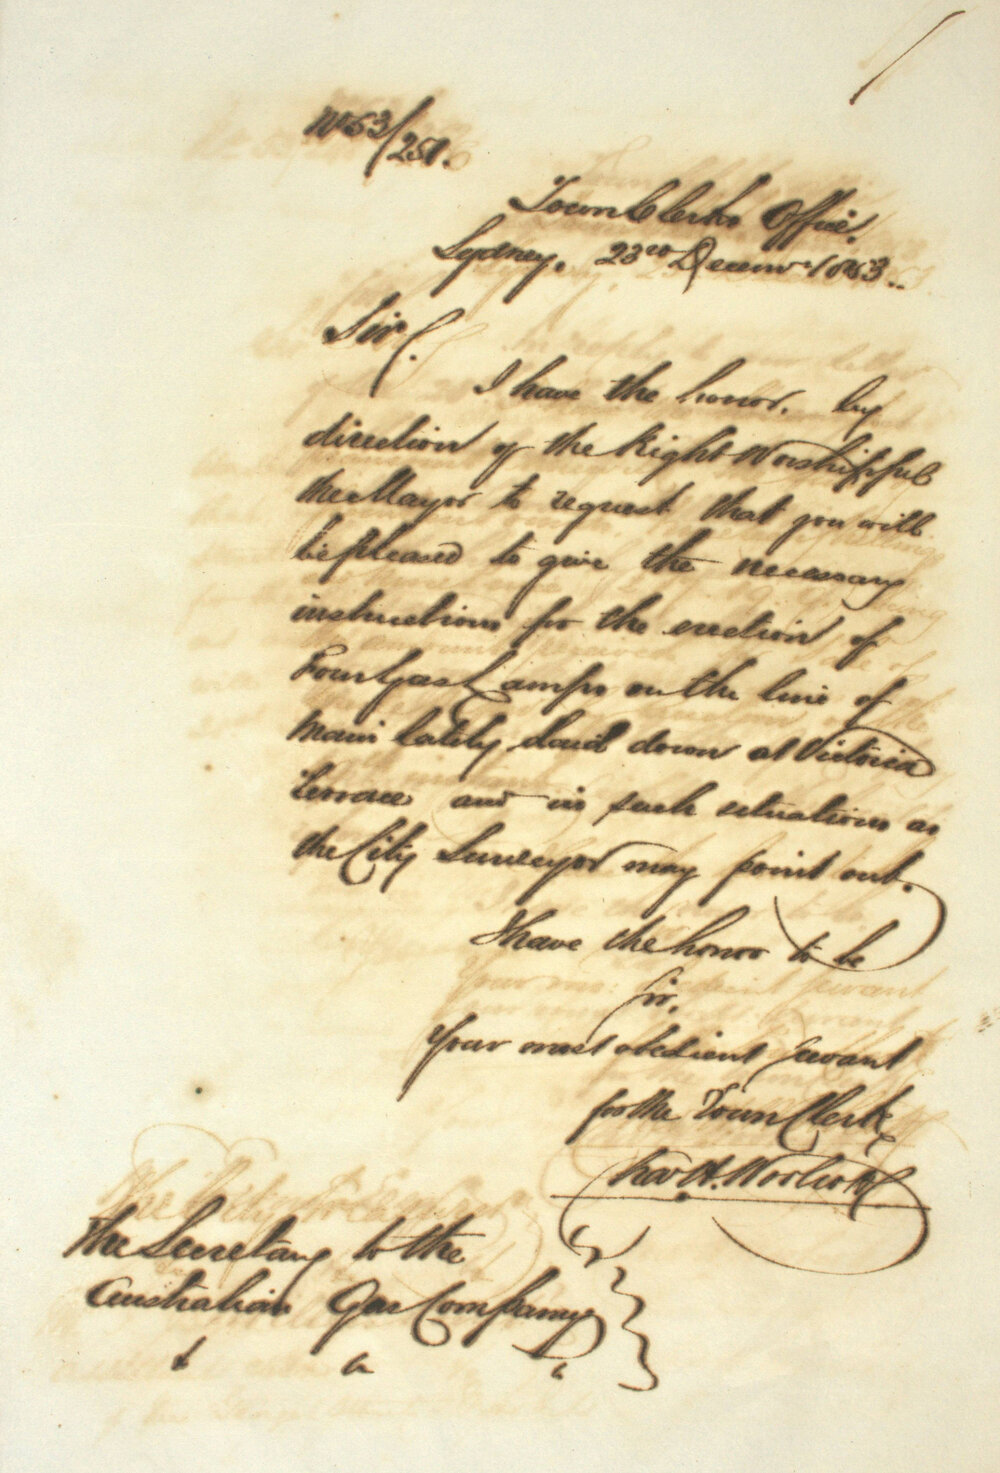 No 63/251.
Town Clerks Office.
Sydney. 23rd Decemr 1863.
Sir,
I have the honor, by
direction of the Right Worshipful
the Mayor to request that you will
be pleased to give the necessary
instructions for the erection of
Four Gas Lamps on the line of
main lately laid down at Victoria
Terrace and in such situations as
the City Surveyor may point out.
I have the honor to be
Sir,
Your most obedient servant
for the Town Clerk
Chas H. Woolcott
The Secretary to the
Australian Gas Company